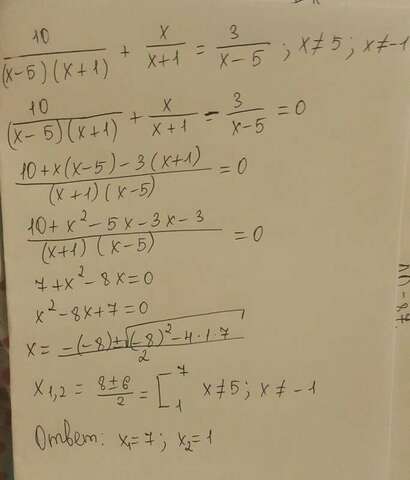 10/((x-5)(x+1)) + x/(x+1) = 3/(x-5) ; x≠5; x≠-1
10/((x-5)(x+1)) + x/(x+1) - 3/(x-5) = 0
(10+x(x-5)-3(x+1))/((x+1)(x-5)) = 0
(10+x²-5x-3x-3)/((x+1)(x-5)) = 0
7+x²-8x=0
x²-8x+7=0
x = (-(-8)±√((-8)²-4·1·7))/2
x₁,₂ = (8±6)/2 = [7 1 x≠5; x≠-1
Ответ: x₁=7; x₂=1